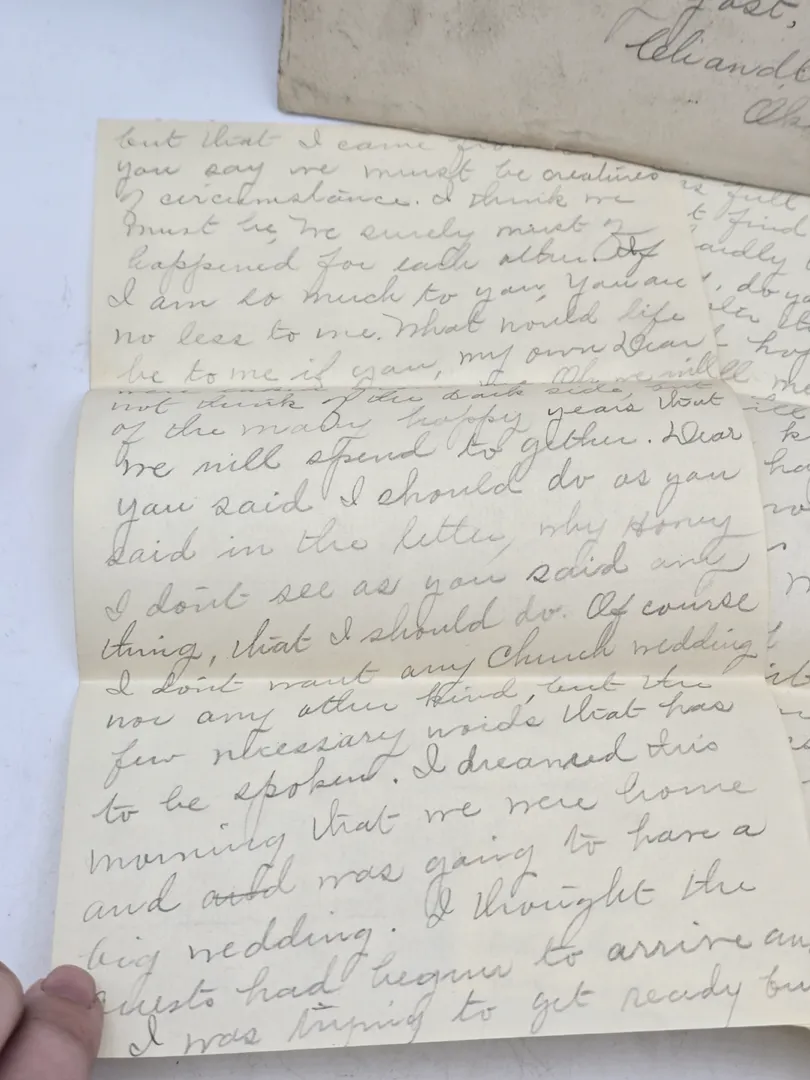 ost,
Chandl
Ok
but that I came from
you say we must be creatures
of circumstance. I think we
must be, We surely must of
happened for each other. If
I am so much to you, You are
no less to me. What would life
be to me if you, my own Dear
not think of the dark side, but
of the many happy years that
we will spend to gether. Dear
you said I should do as you
said in the letter, why Honey
I dont see as you said any
thing, that I should do. Of course
I dont want any Church wedding
nor any other kind, but the
few necessary words that has
to be spoken. I dreamed this
morning that we were home
and and was going to have a
big wedding. I thought the
guests had begun to arrive an
I was trying to get ready bu
is full
t find
ardly
, do yo